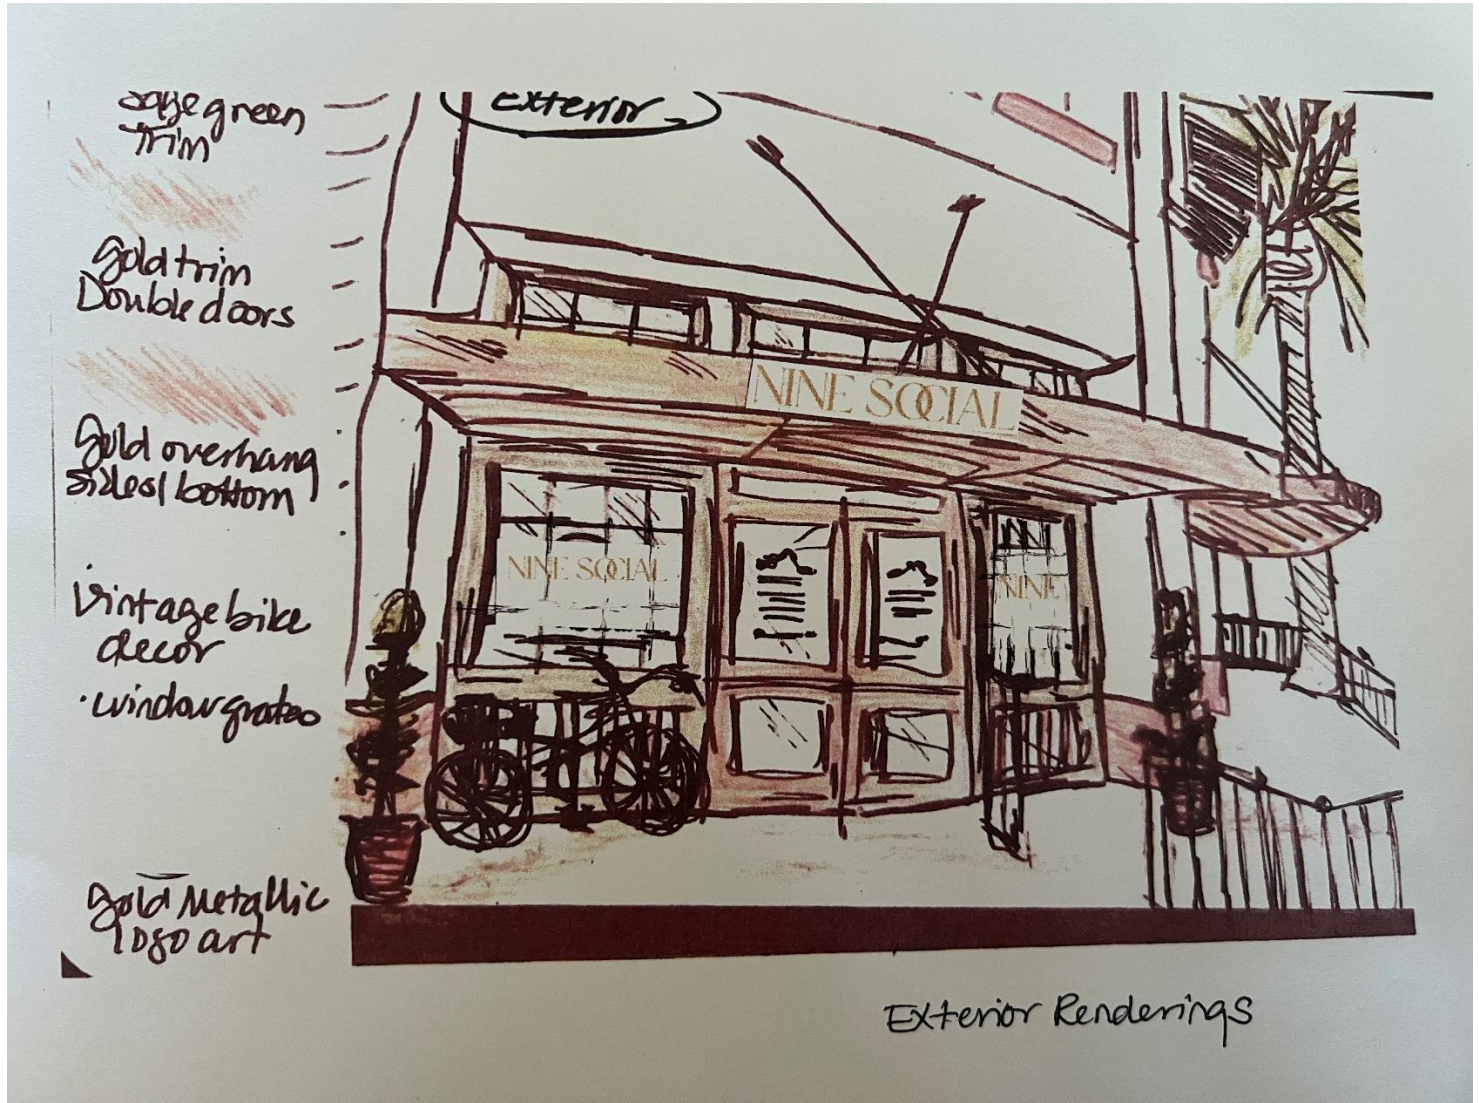 Exterior
sage green
Trim
Gold trim
Double doors
Gold overhang
sides/bottom
Vintage bike
decor
·window grates
Gold Metallic
logo art
NINE SOCIAL
NINE SOCIAL
NINE
Exterior Renderings